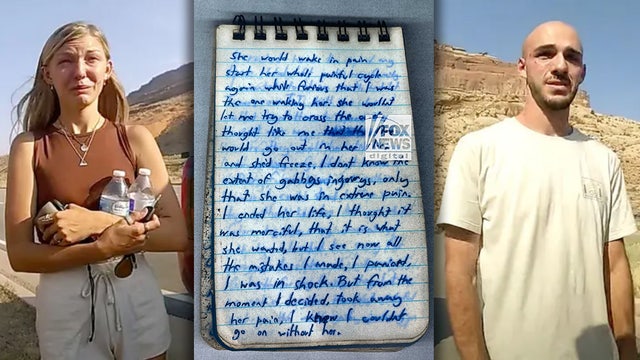 She would wake in pain
start her whole painful cycle
again while furious that I was
the one waking her. She wouldn't
let me try to cross the
thought like me
would go out her
and she'd freeze, I don't know the
extent of gabbys ingurys. only
that she was in extreme pain.
I ended her life, I thought it
was merciful, that it is what
she wanted, but I see now all
the mistakes I made, I panicked,
I was in shock. But from the
moment I decided, took away
her pain, I knew I couldn't
go on without her.
FOX
NEWS
digital